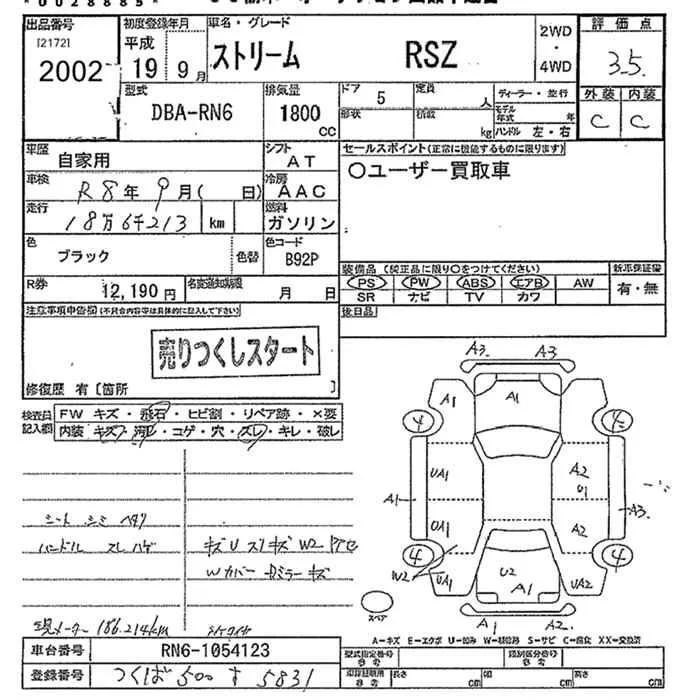 *0028885*
出品番号 初度登録年月 車名・グレード 2WD・4WD 評価点
[2172] 2002 平成 19 9月 ストリーム RSZ 3.5
型式 DBA-RN6 排気量 1800 CC ドア 5 定員 人 ディーラー・並行 外装 内装
形状 積載 kg モデル年式 年 ハンドル 左・右 C C
車歴 自家用 シフト AT セールスポイント(正常に機能するものに限ります)
車検 R8年9月( 日) 冷房 AAC 〇ユーザー買取車
走行 18万6千213 km 燃料 ガソリン
色 ブラック 色替 色コード B92P
R券 12,190円 名変通知期限 月 日
装備品(純正品に限り〇をつけてください) 新車保証書
PS PW ABS エアB AW 有・無
SR ナビ TV カワ
後日品
注意事項申告欄(不具合内容等は具体的に記入して下さい)
売りつくしスタート
修復歴 有〔箇所
検査員記入欄 FW キズ・飛石・ヒビ割・リペア跡・×要
内装 キズ・汚レ・コゲ・穴・スレ・キレ・破レ
A3 A3
A1 A1
4 4
UA1 A2 U1
A1 A3
UA1 A2
4 4
W2 UA1 U2 A1 UA2
A1 A2
シート シミ ヘタリ
ハンドル スレ ハゲ キズU スリキズ W2
Wカバー ドミラー キズ
現メーター 186.214km
スペア
A=キズ E=エクボ U=凹み W=補修跡 S=サビ C=腐食 XX=交換済
車台番号 RN6-1054123 型式指定番号 参考 類別区分番号 参考
登録番号 つくば 500 す 5831 車庫証明用 参考 長さ cm 幅 cm 高さ cm